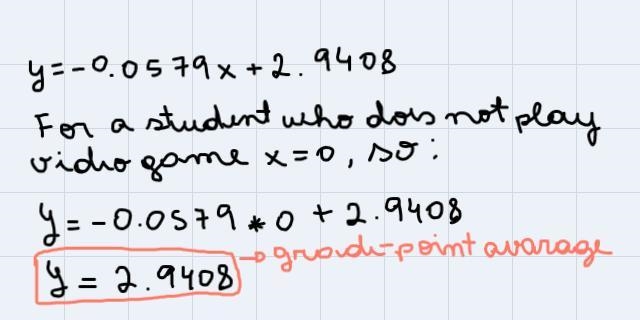 y=-0.0579x+2.9408
For a student who does not play
video game x=0, so:
y=-0.0579*0+2.9408
y=2.9408 → grade-point avarage